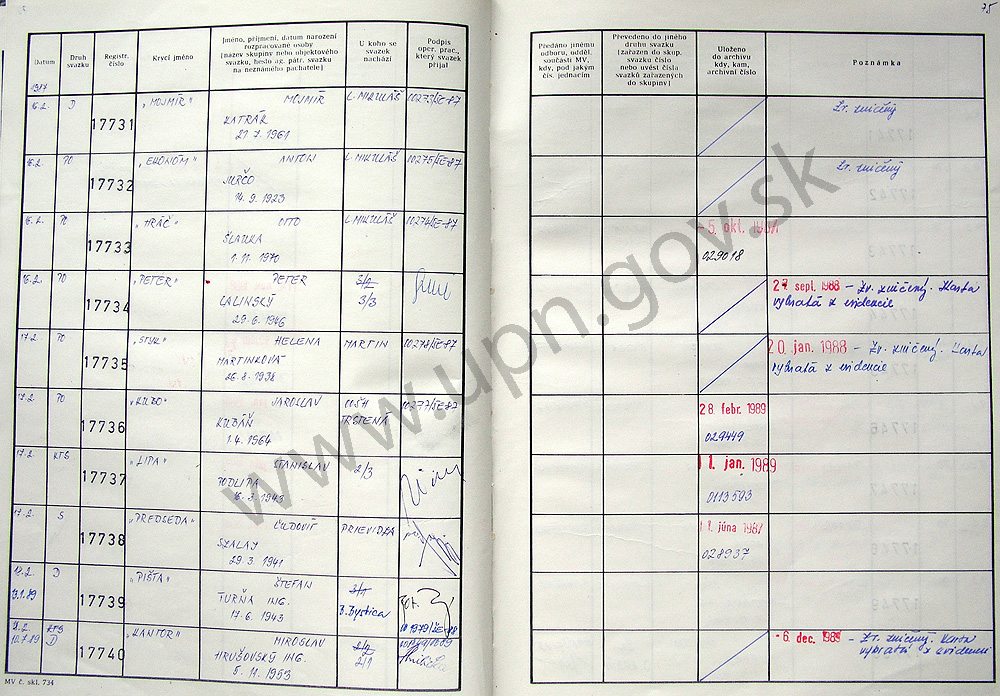 75
Datum
Druh svazku
Registr. číslo
Krycí jméno
Jméno, příjmení, datum narození
rozpracované osoby
(název skupiny nebo objektového
svazku, heslo ag. pátr. svazku
na neznámého pachatele)
U koho se
svazek
nachází
Podpis
oper. prac.,
který svazek
přijal
Předáno jinému
odboru, odděl.
součásti MV,
kdy, pod jakým
čís. jednacím
Převedeno do jiného
druhu svazku
(zařazen do skup.
svazku číslo
nebo uvést čísla
svazků zařazených
do skupiny)
Uloženo
do archivu
kdy, kam,
archivní číslo
Poznámka
1987
16.2. D 17731 „MOJMÍR" MOJMÍR L. MIKULÁŠ 00273/SE-87
KATRÁK
21. 7. 1961
Zv. zničený
16.2. PO 17732 „EKONÓM" ANTON L. MIKULÁŠ 00275/SE-87
JURČO
14. 9. 1923
Zv. zničený
16.2. PO 17733 „HRÁČ" OTTO L. MIKULÁŠ
1. 11. 1970
029018
16.2. PO 17734 „PETER" PETER 3/2
LALINSKÝ 3/3
29. 6. 1946
27. sept. 1988 – Zv. zničený. Karta
vybratá z evidencie
17.2. PO 17735 „STYK" HELENA MARTIN
MARTINKOVÁ
26. 8. 1938
20. jan. 1988 – Zv. zničený. Karta
vybratá z evidencie
17.2. PO 17736 „KUBO" JAROSLAV
KUBÁŇ TRSTENÁ 00277/SE-87
1. 4. 1964
28 febr. 1989
029449
17.2. KTS 17737 „LIPA" STANISLAV 2/3
PODLIPA
1943
11. jan. 1989
0113593
17.2. S 17738 „PREDSEDA" ĽUDOVÍT PRIEVIDZA
SZALAY
29. 3. 1941
11. júna 1987
028937
D 17739 „PIŠTA" ŠTEFAN 3/1
9.1.89 TURŇA ING. B. Bystrica
17. 6. 1943
KTS 17740 „KANTOR" MIROSLAV
10.7.89 D HRUŠOVSKÝ ING. 2/1
5. 11. 1953
-6. dec. 1989 – Zv. zničený. Karta
vybratá z evidencie
MV č. skl. 734
www.upn.gov.sk